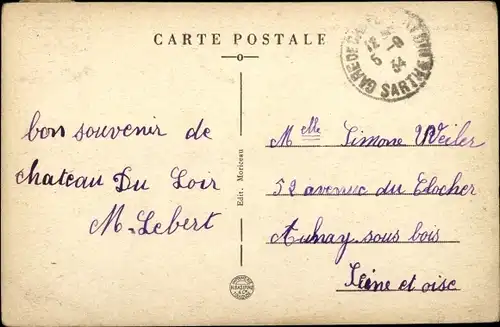 CARTE POSTALE
GARE DE CHATEAU DU LOIR
12 30
5 -8
34
SARTHE
bon souvenir de
chateau Du Loir
M. Lebert
Edit. Moriceau
Melle Simone Weiler
52 avenue du Clocher
Aulnay sous bois
Seine et oise